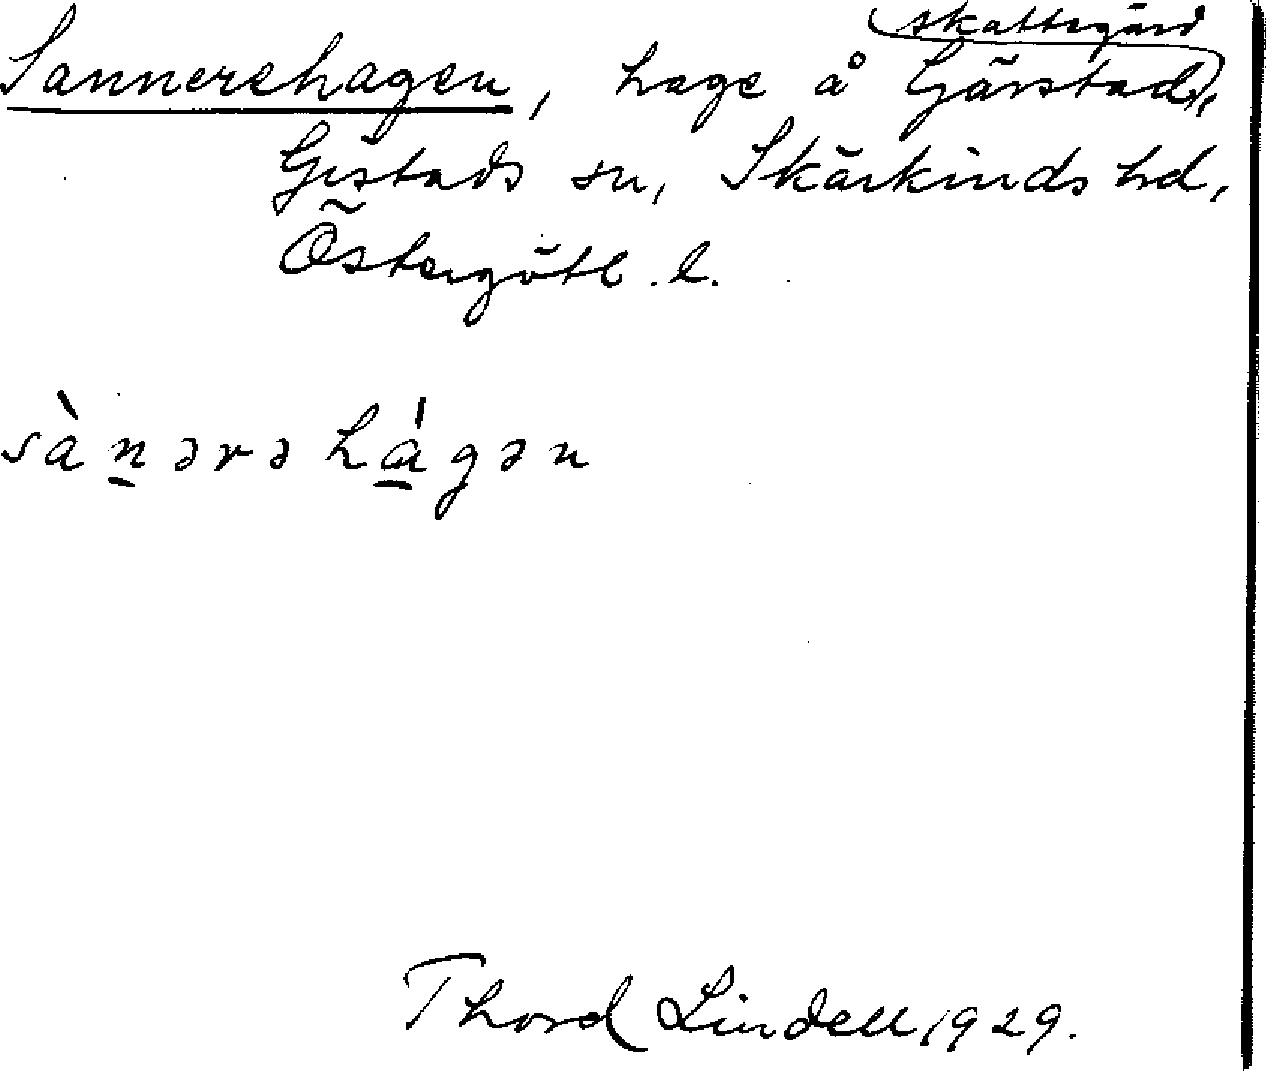 Sannerehagen, hage å Gärstads skattegård,
Gistads sn, Skärkinds hd,
Östergötl. l.
sànərə hágən
Thord Lindell 1929.